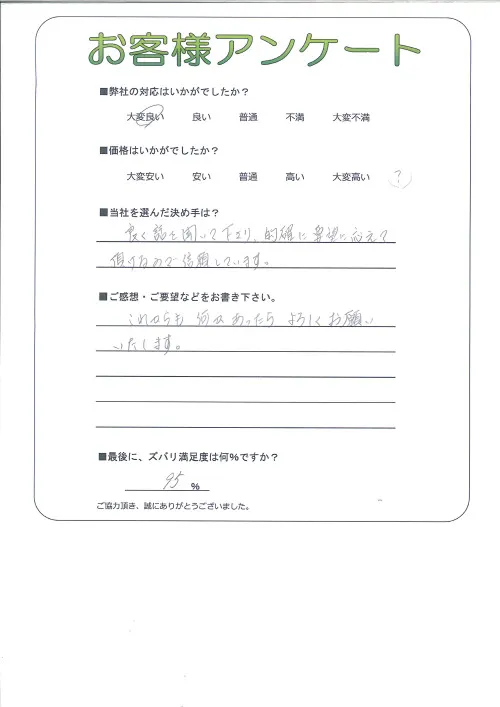 お客様アンケート
■弊社の対応はいかがでしたか？
大変良い 良い 普通 不満 大変不満
■価格はいかがでしたか？
大変安い 安い 普通 高い 大変高い ?
■当社を選んだ決め手は？
良く話を聞いて下さり、的確に要望に応えて
頂けるので信頼しています。
■ご感想・ご要望などをお書き下さい。
これからも 何かあったら よろしくお願い
いたします。
■最後に、ズバリ満足度は何％ですか？
95 %
ご協力頂き、誠にありがとうございました。